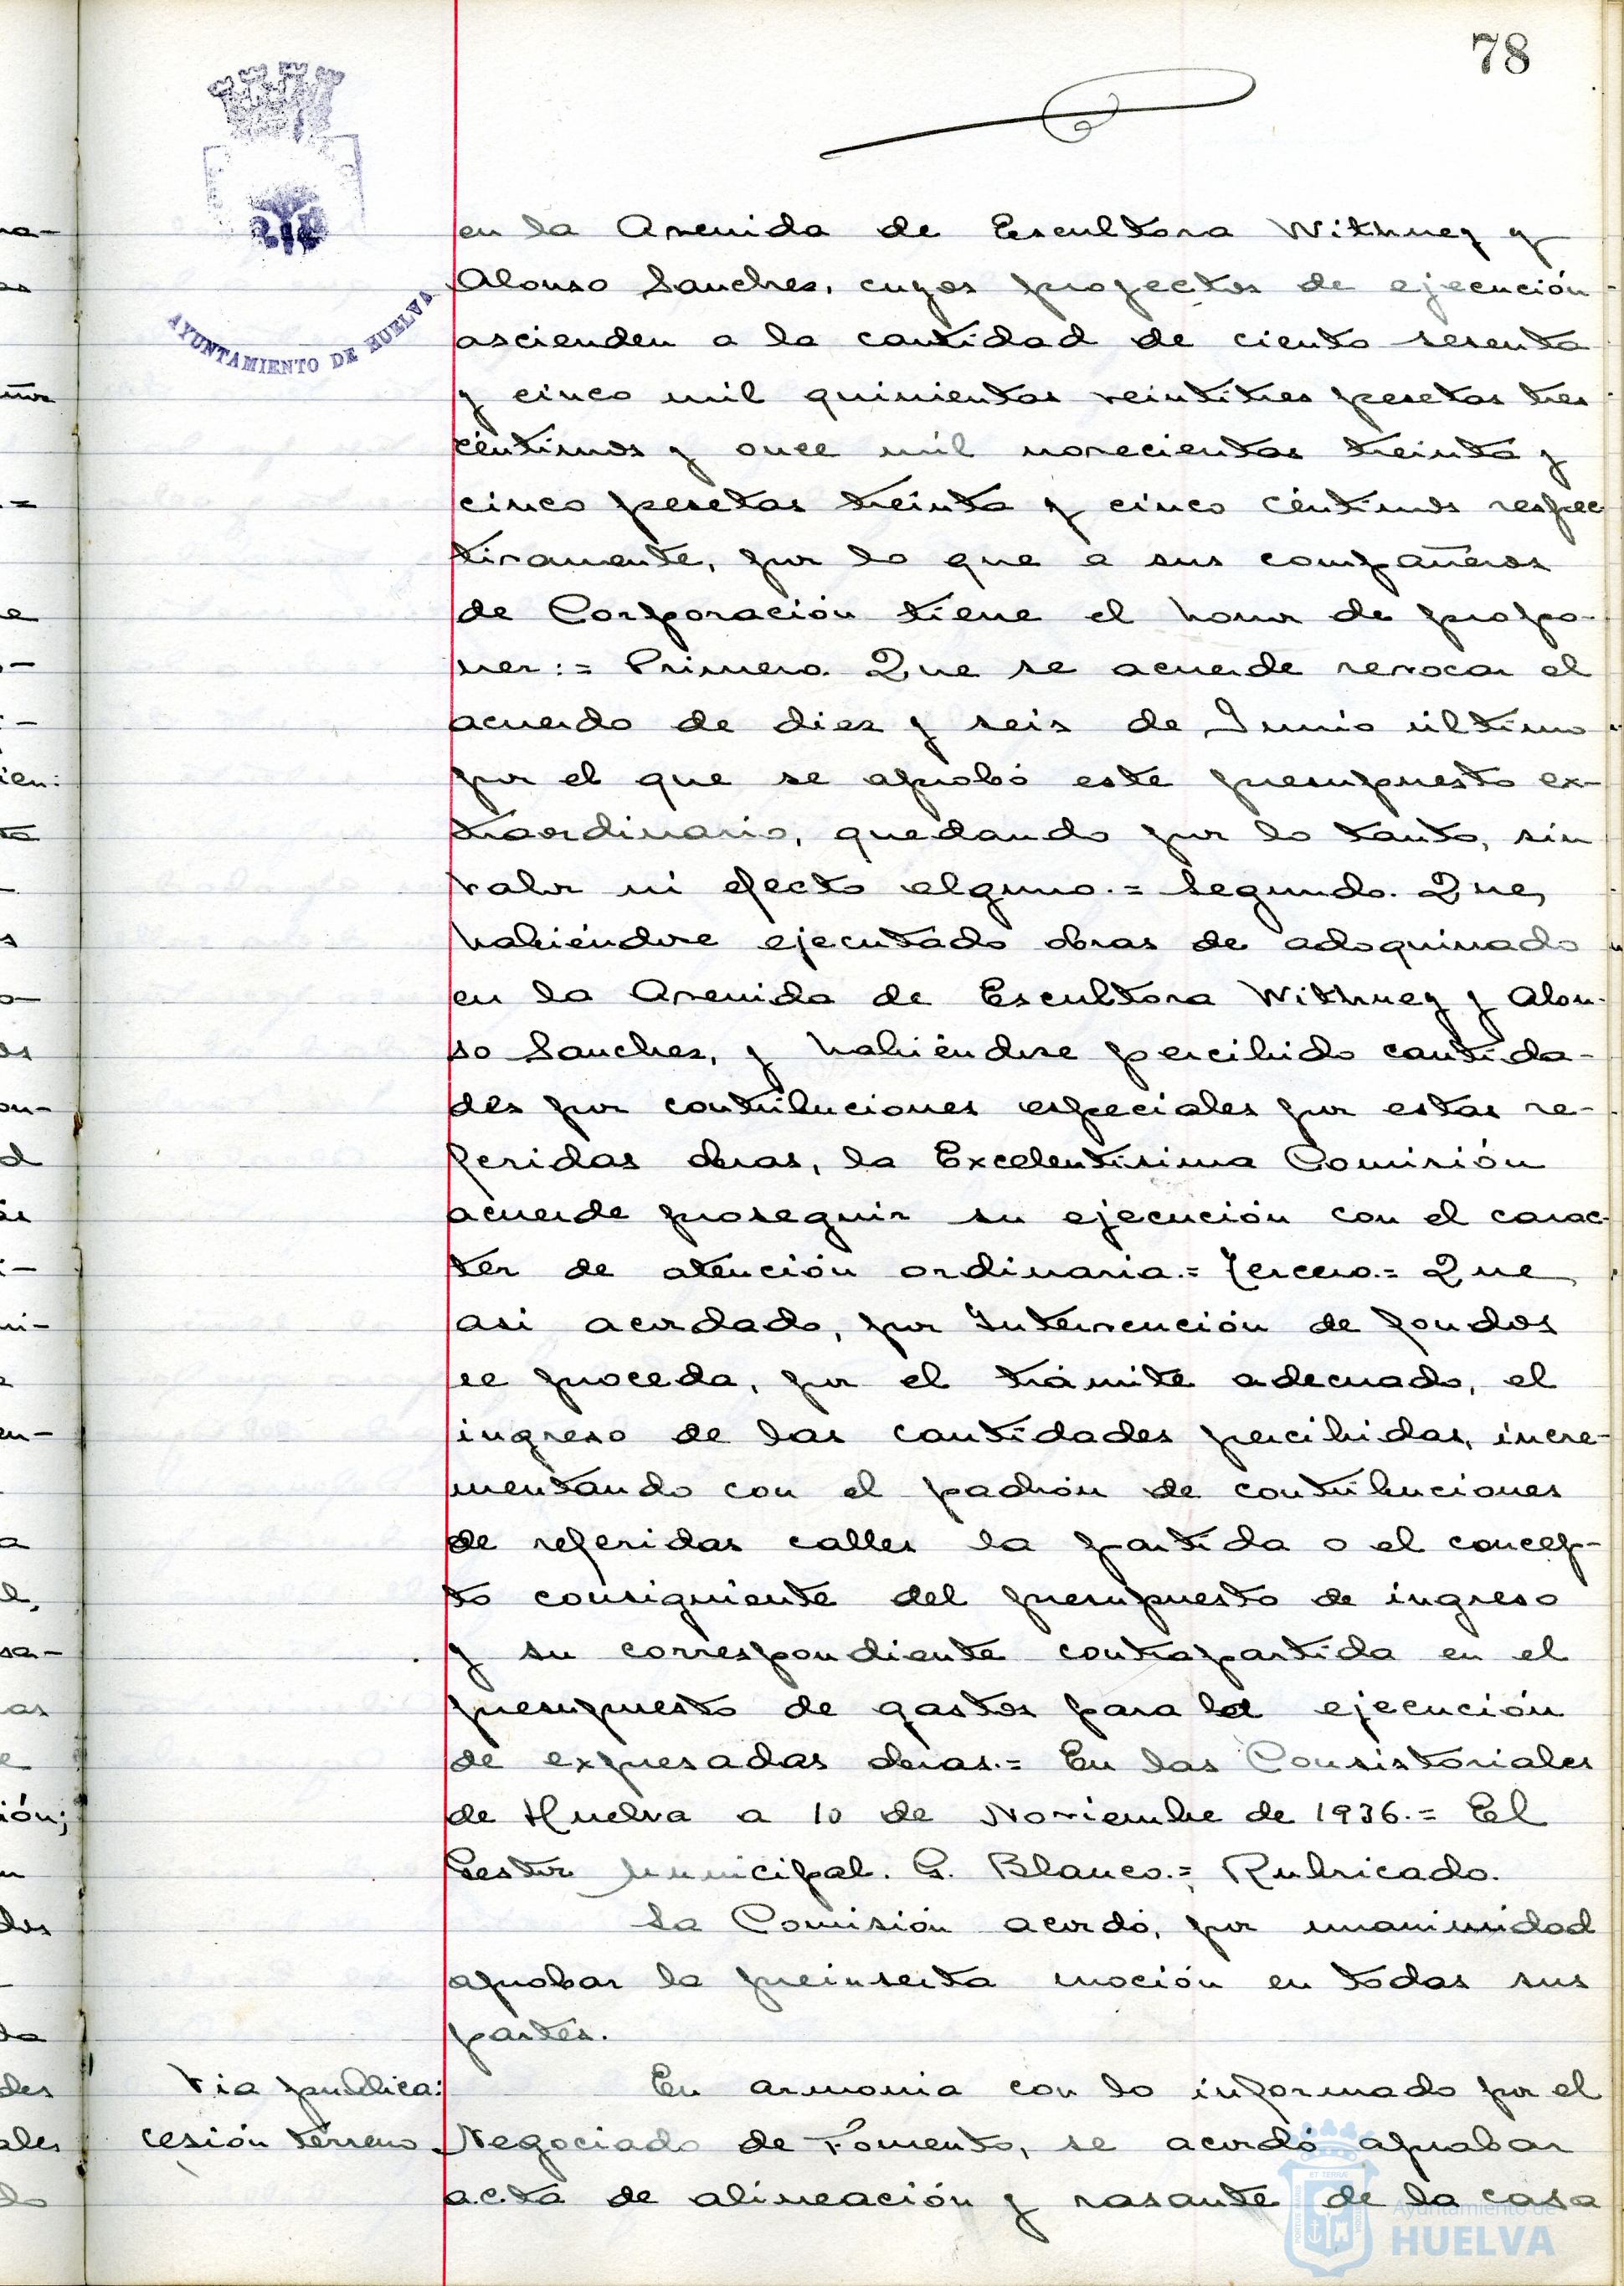 78
AYUNTAMIENTO DE HUELVA
en la Avenida de Escultora Withney y
Alonso Sanches, cuyos proyectos de ejecución
ascienden a la cantidad de ciento sesenta
y cinco mil quinientas veintitres pesetas tres
céntimos y once mil novecientas treinta y
cinco pesetas treinta y cinco céntimos respec
tivamente, por lo que a sus compañeros
de Corporación tiene el honor de propo-
ner:= Primero. Que se acuerde revocar el
acuerdo de diez y seis de Junio último
por el que se aprobó este presupuesto ex-
traordinario, quedando por lo tanto, sin
valor ni efecto alguno.= Segundo. Que,
habiéndose ejecutado obras de adoquinado
en la Avenida de Escultora Withney y Alon-
so Sanches, y habiéndose percibido cantida-
des por contribuciones especiales por estas re-
feridas obras, la Excelentísima Comisión
acuerde proseguir su ejecución con el carac-
ter de atención ordinaria.= Tercero.= Que
asi acordado, por Intervención de fondos
se proceda, por el trámite adecuado, el
ingreso de las cantidades percibidas, incre-
mentando con el padrón de contribuciones
de referidas calles la partida o el concep-
to consiguiente del presupuesto de ingreso
y su correspondiente contrapartida en el
presupuesto de gastos para la ejecución
de expresadas obras.= En las Consistoriales
de Huelva a 10 de Noviembre de 1936.= El
Gestor Municipal. G. Blanco.= Rubricado.
La Comisión acordó, por unanimidad
aprobar la preinserta moción en todas sus
partes.
Via publica:
cesión terreno
En armonia con lo informado por el
Negociado de Fomento, se acordó aprobar
acta de alineación y rasante de la casa
Ayuntamiento de
HUELVA